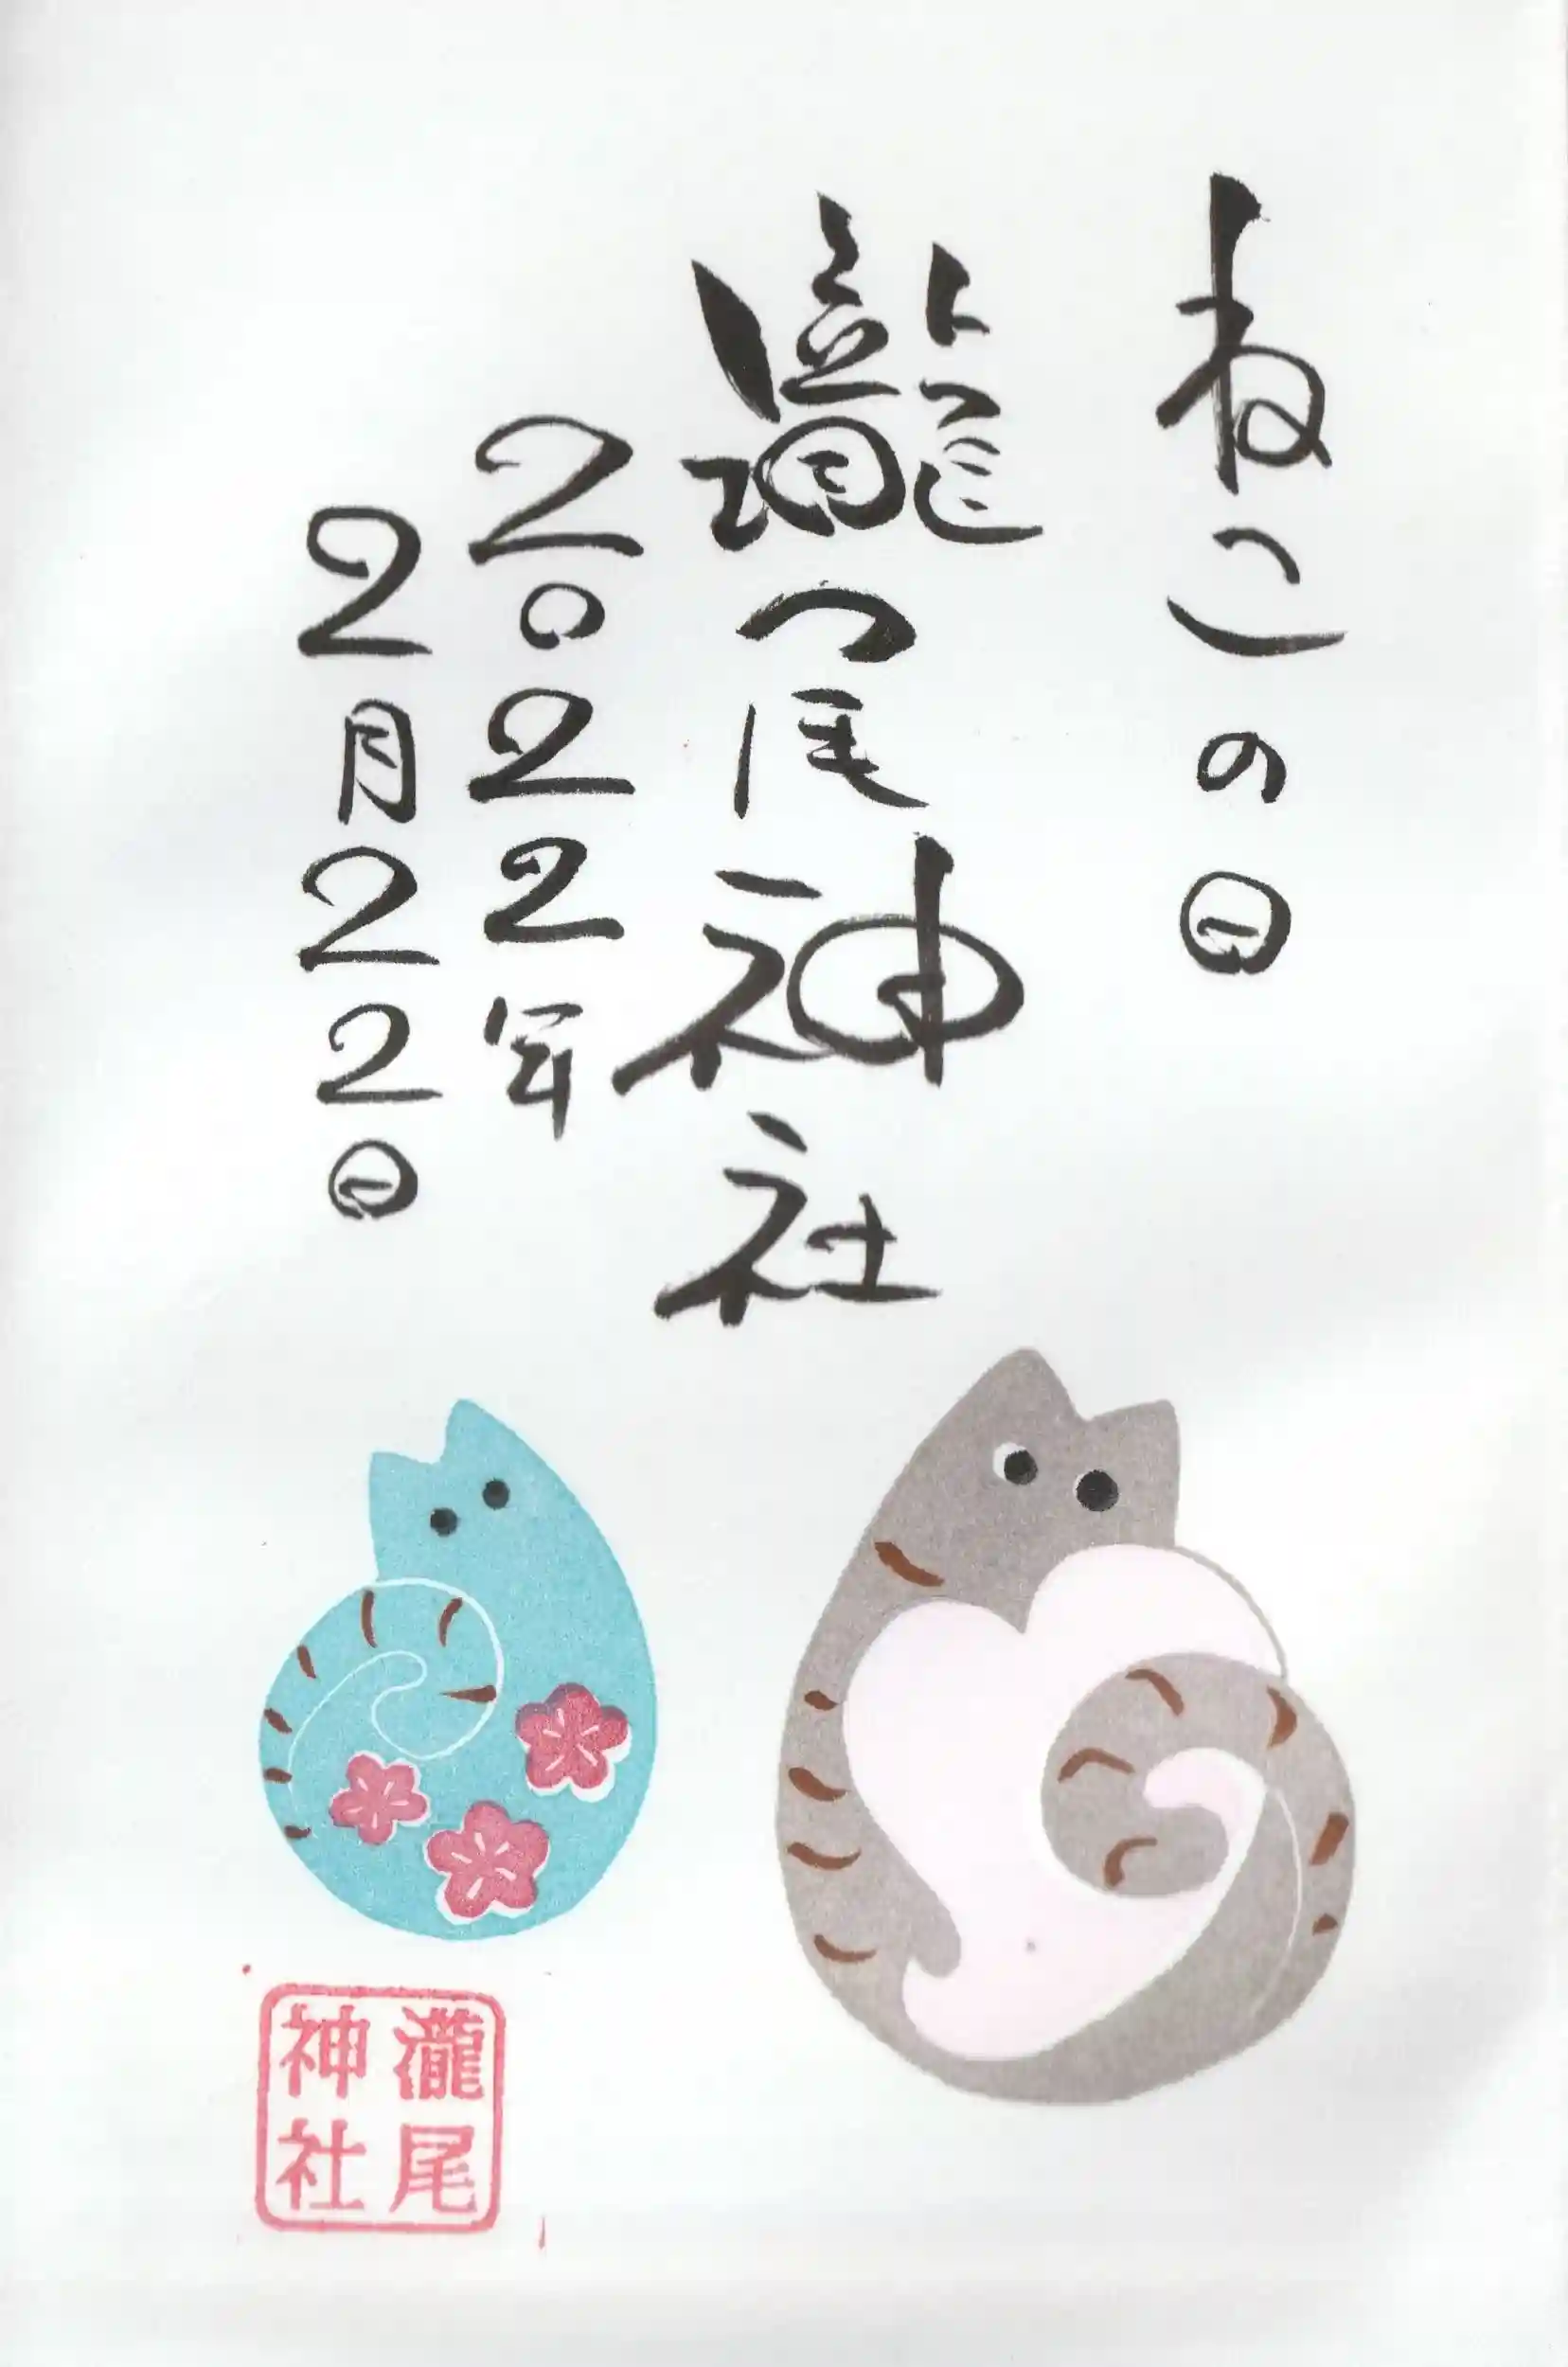 ねこの日
瀧尾神社
2022年
2月22日
瀧尾
神社